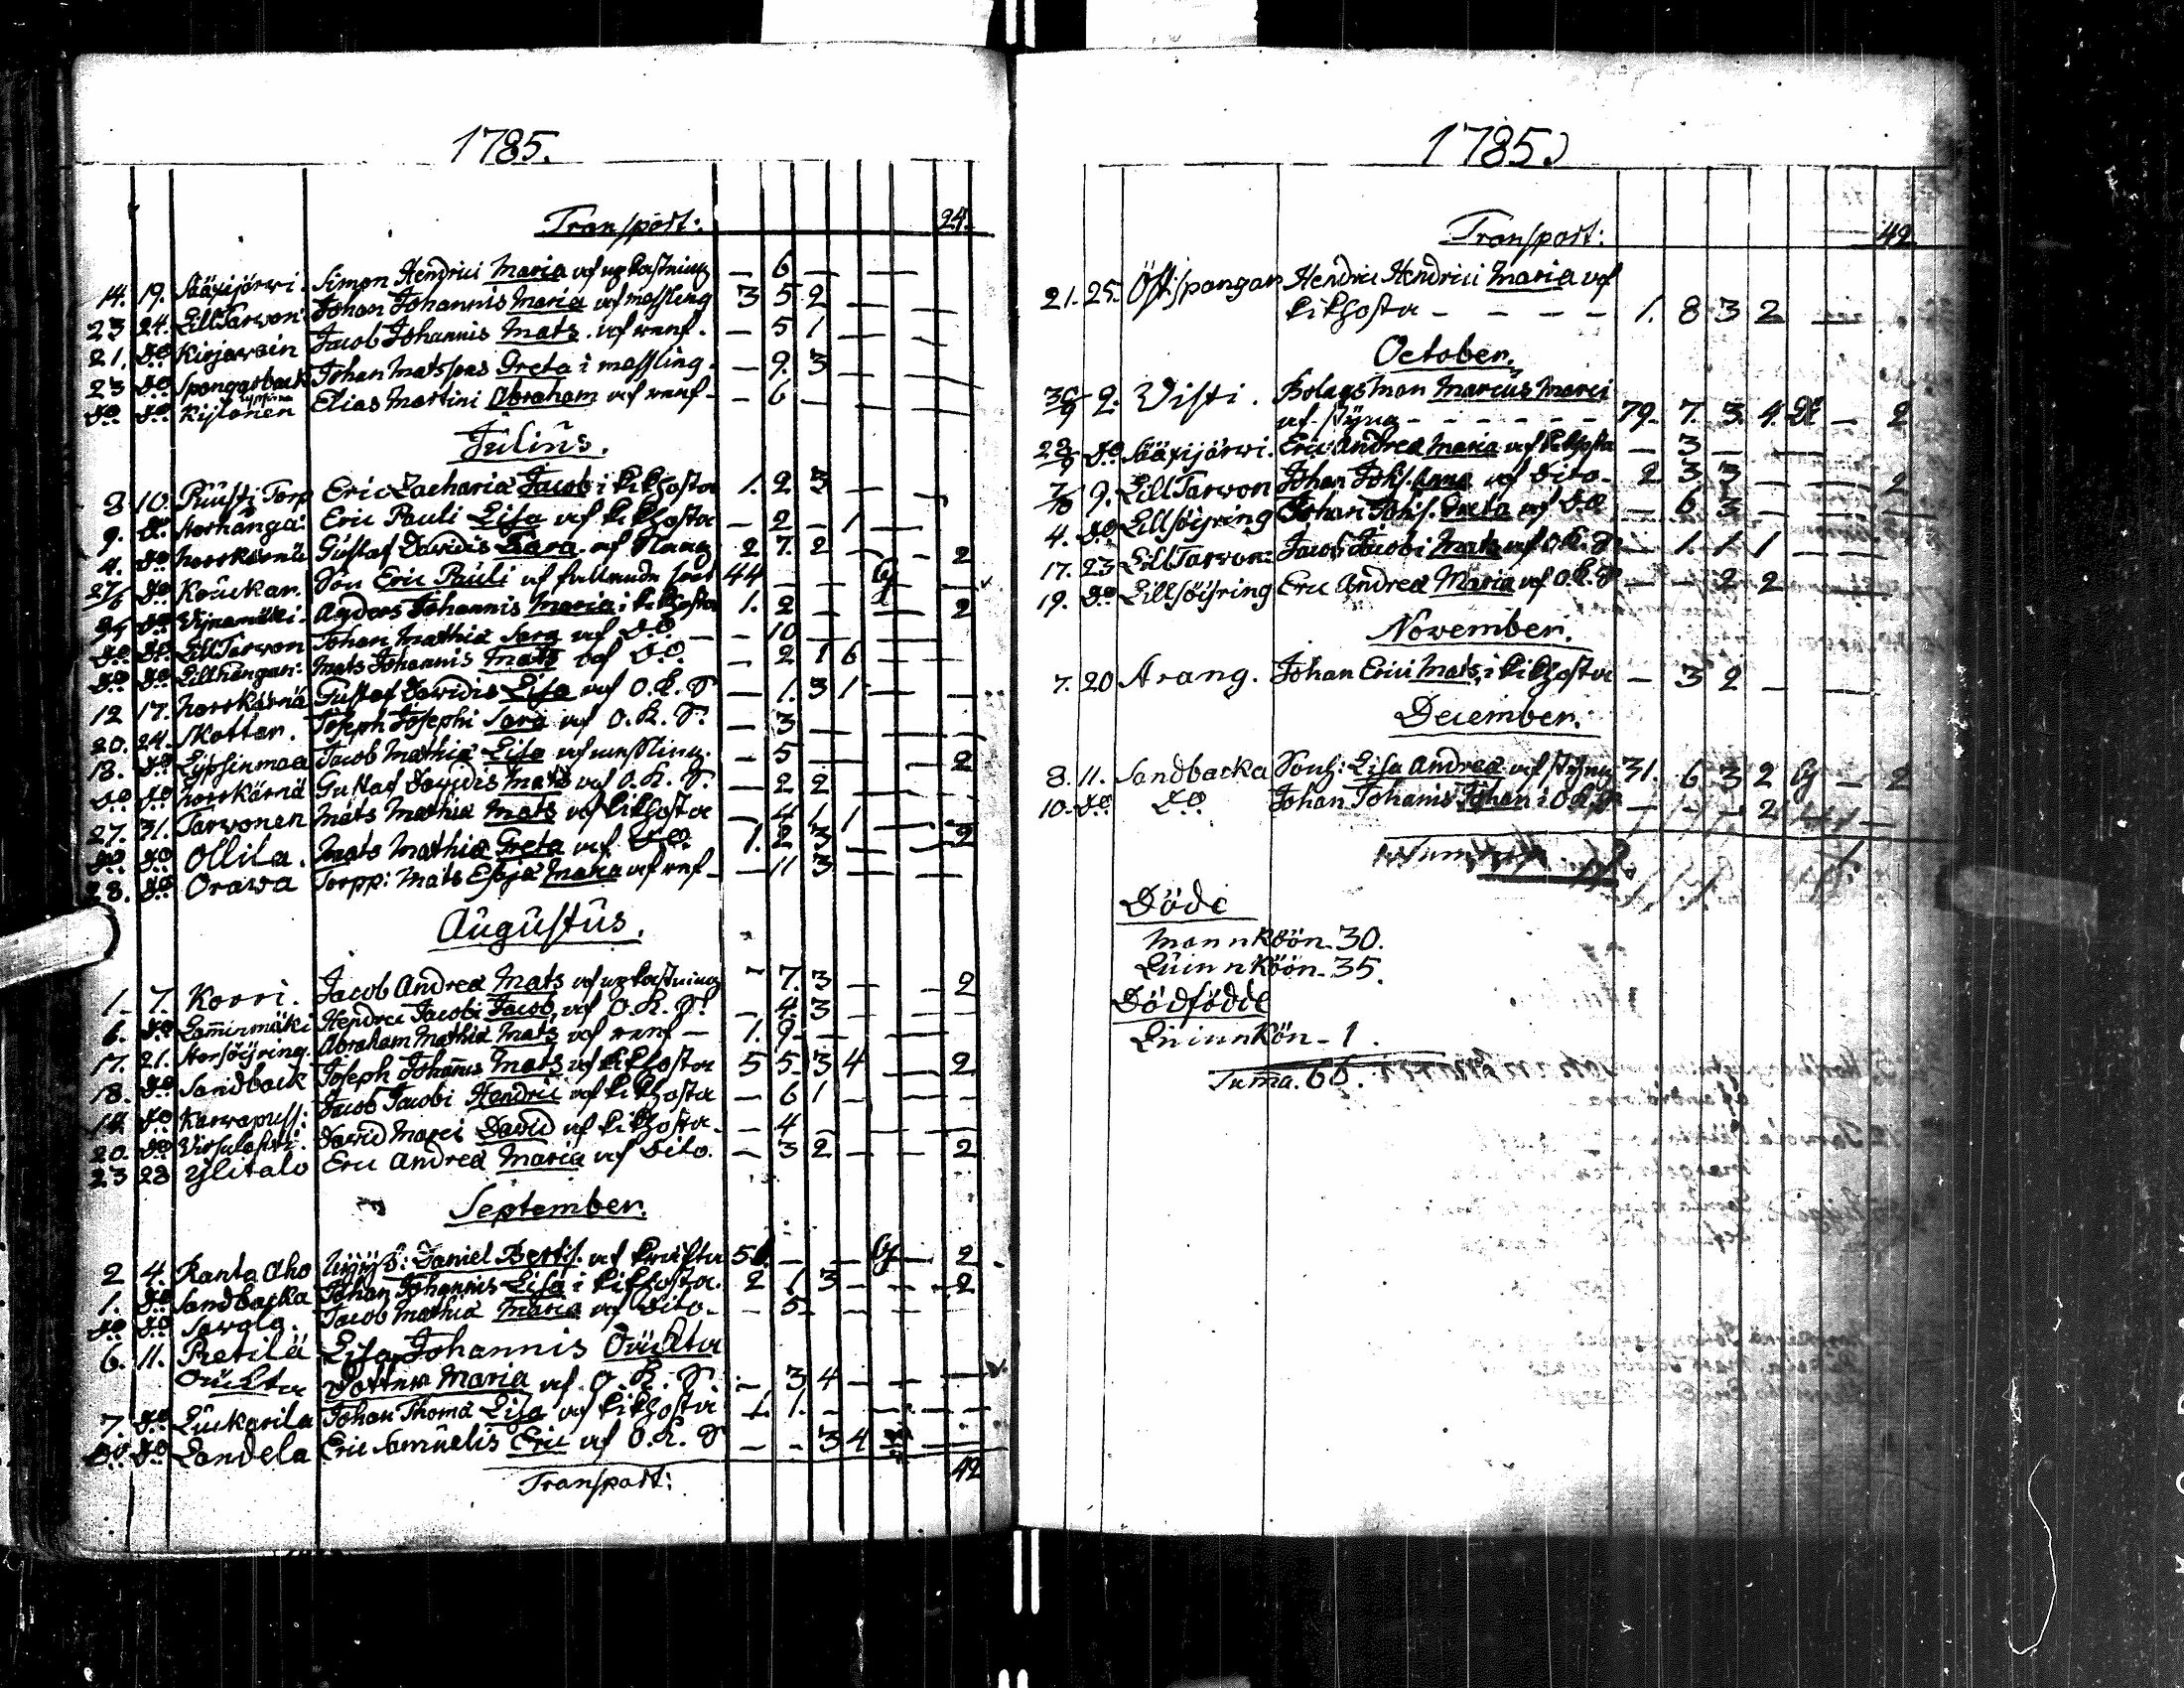 1785.
Transport: 24.
14. 19. Sääxijärvi. Simon Hendrici Maria af upkastning — 6 — — — —
23 24. LillTarvon Johan Johannis Maria af messling 3 5 2 — —
21. do Kirjavain Jacob Johannis Mats af renf. — 5 1 — —
23 do Spongarback Johan Matssons Greta i messling. — 9. 3 — —
do do Elias Martini Abraham af renf — 6 — — —
Julius.
8 10. Ruusti Torp Eric Zachariæ Jacob i kikhosta 1. 2 3 — —
9. do Storhanga: Eric Pauli Lisa af kikhosta — 2 — 1 —
4. do Norrkärnä Gustaf Davidis Sara af 2 7. 2 — — 2
27/6 do Kouckar. Son Eric Pauli af fallande sot 44 — — G —
do Anders Johannis Maria i kikhosta 1. 2 — — 2
do do LillTarvon Johan Mathiæ Sara af do — — 10 — —
do do Lillhangar: Mats Johannis Mats af do — 2 1 6 — —
12 17. Norrkärnä Gustaf Davidis Lisa af O. K. S — 1. 3 1 — —
20. 24. Skottar. Joseph Josephi Sara af O. K. S. — 3 — — —
18. do Lypsinmaa Jacob Mathiæ Lisa af messling. — 5 — — 2
do do Norrkärnä Gustaf Davidis Mats af O. K. S. — 2 2 — —
27. 31. Tarvonen Mats Mathiæ Mats af kikhosta — 4 1 1 — —
do do Ollila. Mats Mathiæ Greta af do. 1. 2 3 — — 2
28. do Orawa Torpp: Mats Maria af renf — — 11 3 — —
Augustus.
1. 7. Korri. Jacob Andreæ Mats af upkastning — 7. 3 — — 2
6. do Lamminmäki Hendric Jacobi Jacob af O. K. S. — 4. 3 — —
17. 21. Storsöyring. Abraham Mathiæ Mats af renf — 1. 9 — — —
18. do Sandback Joseph Johannis Mats af kikhosta 5 5 3 4 — 2
14. do Karvapuss: Jacob Jacobi Hendric af kikhosta — 6 1 — —
20. do David Marci David af kikhosta. — 4 — — —
23 28 Ylitalo Eric Andreæ Maria af dito. — 3 2 — — 2
September.
2 4. Ranta Aho Daniel Bertils. af — — G — 2
1. do Sandbacka Johan Johannis Lisa i kikhosta. 2 1 3 — — 2
do do Savola. Jacob Mathiæ Maria af dito. — 5 — —
6. 11. Pretilä Lisa Johannis Oäckta
Oäckta Dotter Maria af O. K. S. — 3 4 — — —
7. do Luckarila Johan Thomæ Lisa af kikhosta 1. 1. — — —
do do Landela Eric Samuelis Eric af O. K. S — — 3 4 —
Transport: 42
1785.
Transport: 42
21. 25. Öst: spongar Hendric Hendrici Maria af
kikhosta — — — — 1. 8 3 2 —
October.
30/9 2. Visti. Bolagsman Marcus Marci
af styng — — — — 79. 7. 3. 4. — 2
28/9 do Sääxijärvi. Eric Andreæ Maria af kikhosta — 3 — — —
7/10 9. LillTarvon Johan Johs. Anna af dito. 2 3. 3 — — 2
4. do Lillsöyring Johan Johs. Greta af do — 6. 3 — — —
17. 23 LillTarvon: Jacob Jacobi Mats af O. K. S — 1. 1 1 — —
19. do Lillsöyring Eric Andreæ Maria af O. K. S — — 2 2 — —
November.
7. 20 Arang. Johan Erici Mats i kikhosta — 3 2 — —
December.
8. 11. Sandbacka Lisa Andreæ af styng 31. 6 3 2 G — 2
10. do do Johan Johanis Johan i O. K. S — — — 2 — —
Döde
Mannköön. 30.
Quinnköön. 35.
Dödfödde
Quinnkön. 1.
Suma. 66.